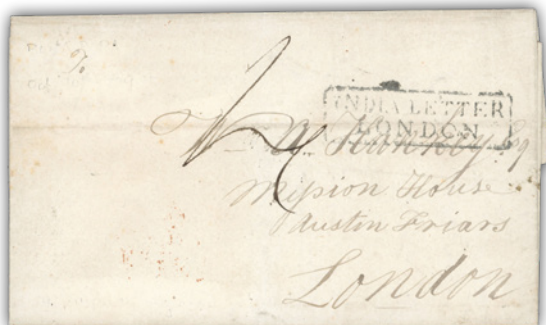 To
INDIA LETTER
LONDON
W. A. Hankey Esq
Mission House
Austin Friars
London